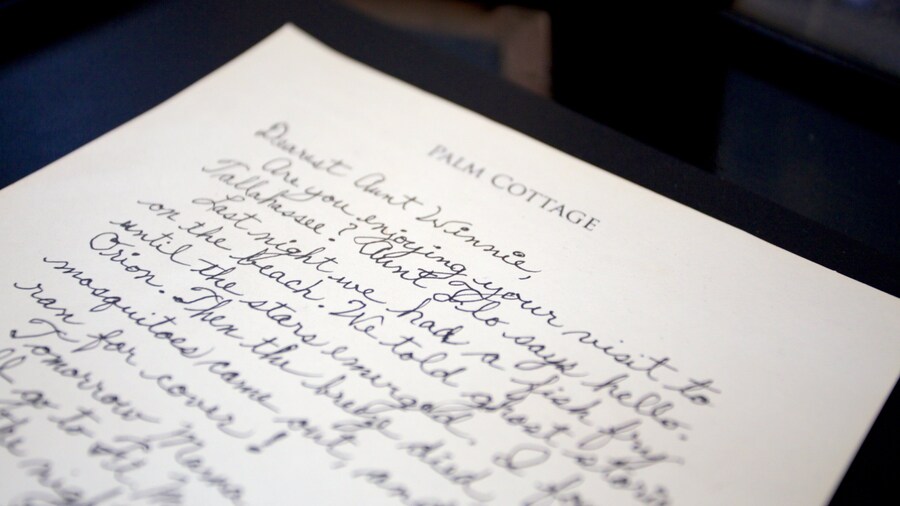 PALM COTTAGE
Dearest Aunt Winnie,
Are you enjoying your visit to
Tallahassee? Aunt says hello.
Last night we had a fish fry
on the beach. We told ghost stories
until the stars emerged. I fo
Orion. Then the breeze died
mosquitoes came out, an
ran for cover!
Tomorrow Mama
go to Ft. M
the nigh